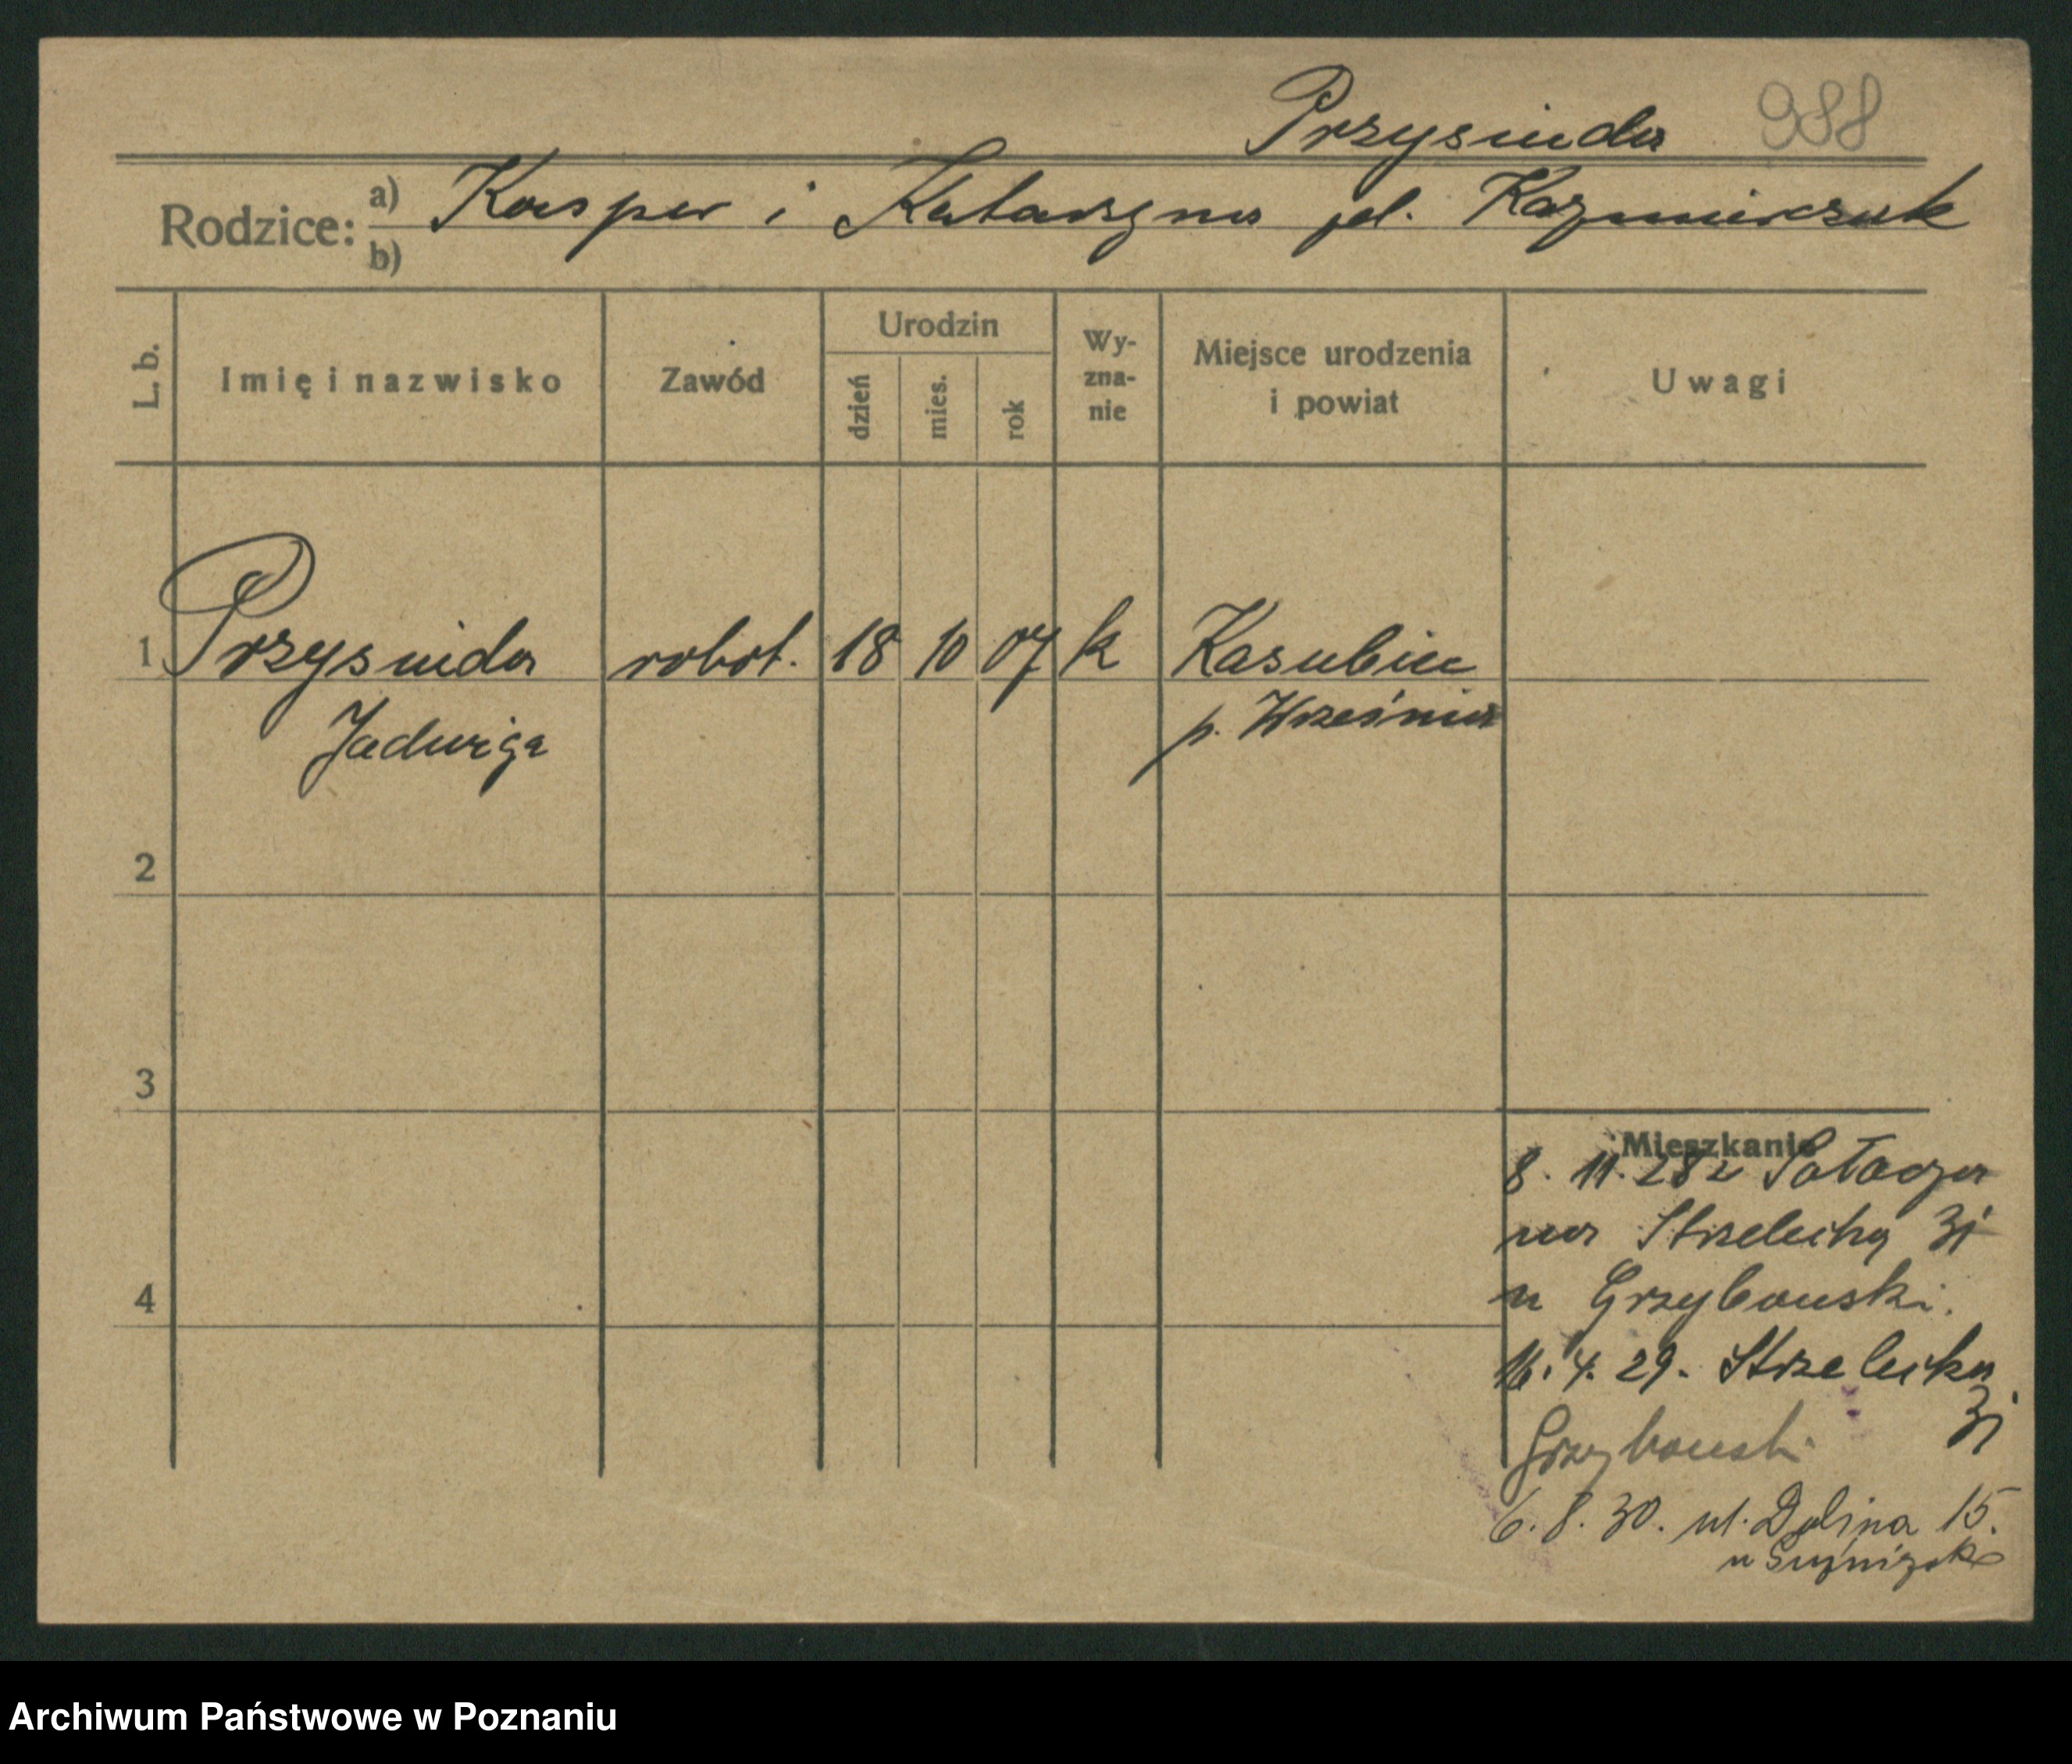 Przysiuda 988
Rodzice: a) Kasper i Katarzyna pł. Kazmierczak
b)
L. b. Imię i nazwisko Zawód Urodzin dzień mies. rok Wy-zna-nie Miejsce urodzenia i powiat Uwagi
1 Przysiuda robot. 18 10 07 k
Jadwiga p. Września
2
3
4
Mieszkanie
8. 11. 28 z Sołacza
na Strzelecką 31
u Grzybowski.
16. 4. 29. Strzelecka
31
Grzybowski
6. 8. 30. ul. Dolina 15.
u
Archiwum Państwowe w Poznaniu